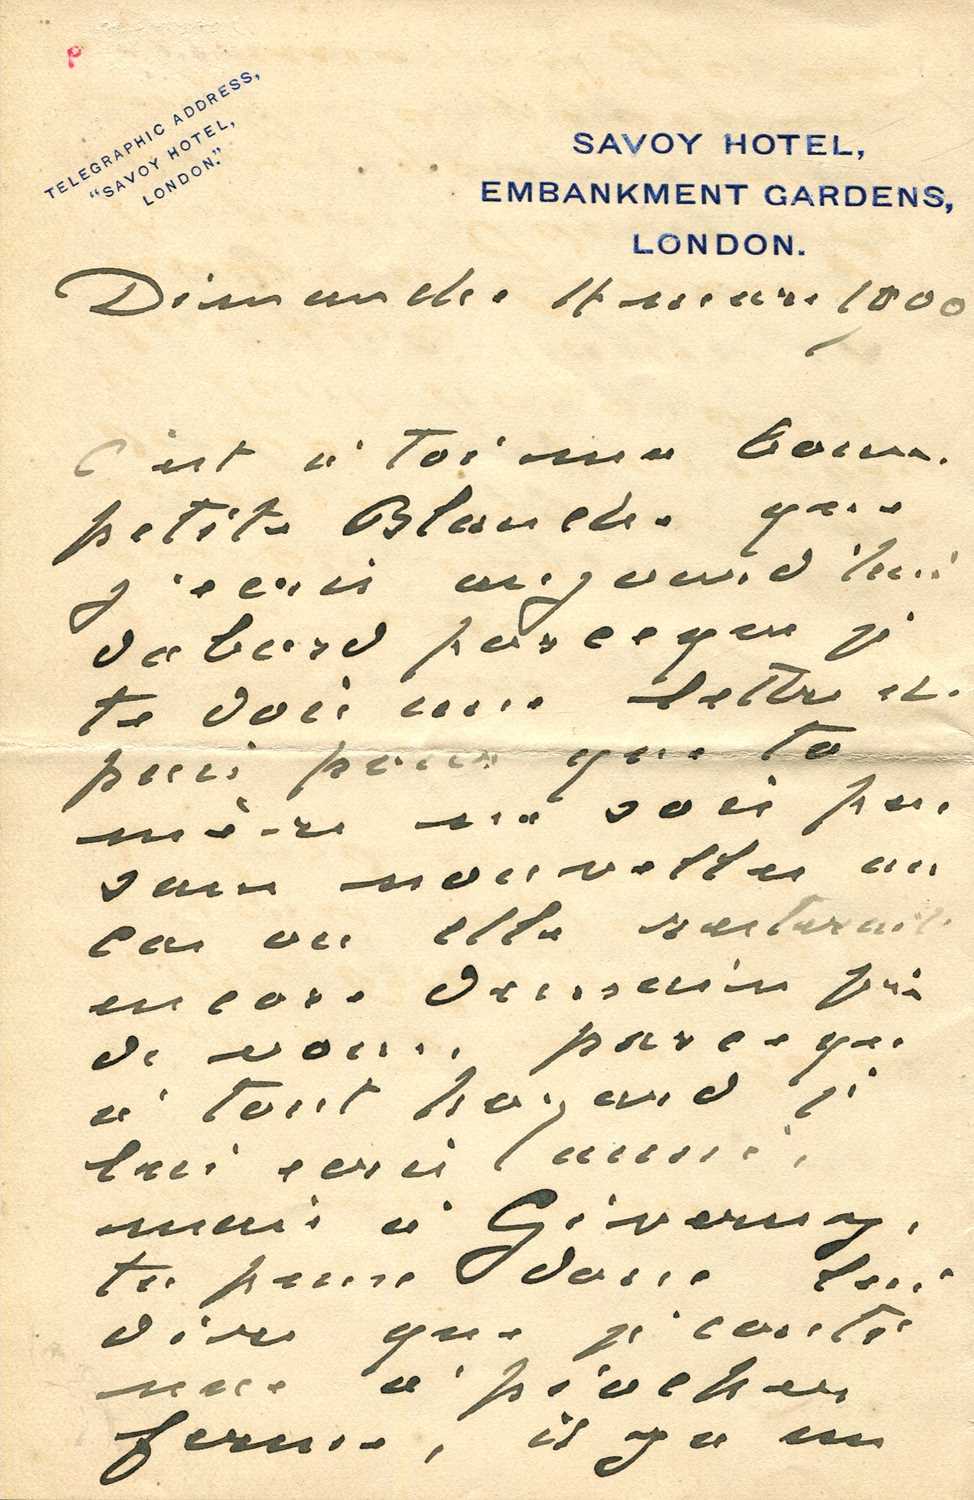 TELEGRAPHIC ADDRESS,
"SAVOY HOTEL,
LONDON."
SAVOY HOTEL,
EMBANKMENT GARDENS,
LONDON.
Dimanche 4 mars 1900
C'est à toi ma bonne
petite Blanche que
j'écris aujourd'hui
dabord parce que je
te dois une lettre et
puis pour que ta
mère ne soit pas
sans nouvelles au
cas ou elle resterait
encore demain près
de vous, parce que
à tout hazard je
lui écris aussi,
mais à Giverny,
tu peux donc lui
dire que j'continue
à piocher
ferme, il y a en